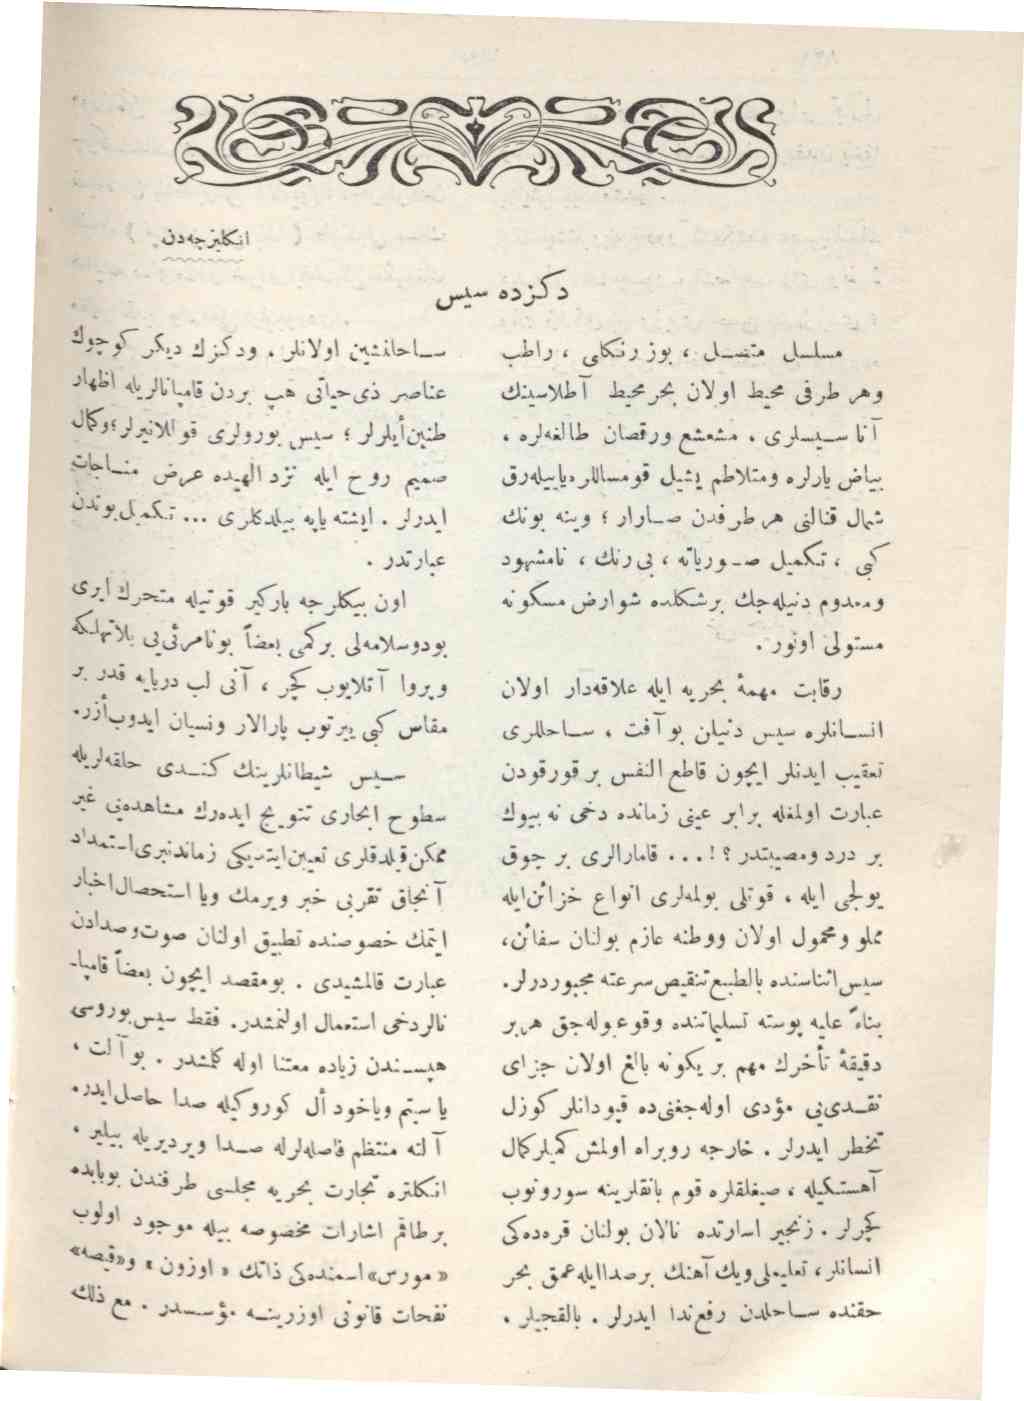 انكليزجه‌دن
دكزده سيس
مسلسل متصـل ، بوز رنكلى ، راطب
وهر طرفى محيط اولان بحر محيط آطلاسينك
آنا سـيسلرى . مشعشع ورقصان طالغه‌لره ،
بياض يارلره ومتلاطم يشيل قومساللر دياييله‌رق
شمال قنالنى هر طرفدن صـارار ؛ وينه بونك
كبى ، تكميل صـورياته ، بى رنك ، نامشهود
ومعدوم دنيله‌جك برشكلده شوارض مسكونه
مستولى اونور .
رقابت مهمۀ بحريه ايله علاقه‌دار اولان
انسـانلره سيس دنيلن بو آفت ، سـاحللرى
تعقيب ايدنلر ايچون قاطع النفس بر قورقودن
عبارت اولمغله برابر عينى زمانده دخى نه بيوك
بر درد ومصيبتدر ؟ ! ... قامارالرى بر چوق
يولجى ايله ، قوتلى بولمه‌لرى انواع خزائن ايله
مملو ومحمول اولان ووطنه عازم بولنان سفائن،
سيس اثناسنده بالطبع تنقيص سرعته مجبوردرلر.
بناءً عليه پوسته تسليماتنده وقوعبوله‌جق هربر
دقيقۀ تأخرك مهم بر يكونه بالغ اولان جزاى
نقـدى‌يى مؤدى اوله‌جغنى‌ده قپودانلر كوزل
تخطر ايدرلر . خارجه روبراه اولمش كميلر كمال
آهستكيله ، صيغلقلره قوم بانقلرينه سورونوب
كچرلر . زنجير اسارتده نالان بولنان قره‌ده‌كى
انسانلر، تعليملى ويك آهنك برصدا ايله عمق بحر
حقنده سـاحلدن رفع ندا ايدرلر . بالقجيلر ،
سـاحلنشين اولانلر ، ودكزك ديكر كوچوك
عناصر ذى‌حياتى هپ بردن قامپانالريله اظهار
طنين‌أيلرلر ؛ سيس بورولرى قوللانيرلر؛ وكمال
صميم روح ايله نزد الهيده عرض منـاجات
ايدرلر . ايشته ياپه بيلدكلرى ... تكميل بوندن
عبارتدر .
اون بيكلرجه باركير قوتيله متحرك ايرى
بودوسلامه‌لى بركمى بعضاً بونامرئى‌يى بلاتهلكه
وپروا آتلايوب كچر ، آنى لب دريايه قدر بر
مقاس كبى ييرتوب پارالار ونسيان ايدوب‌أزر.
سـيس شيطانلرينك كنـدى حلقه‌لريله
سطوح ابحارى تتويج ايده‌رك مشاهده‌يى غير
ممكن قيلدقلرى تعيين ايتديكى زماندنبرى استمداد
آنجاق تقربى خبر ويرمك ويا استحصال اخبار
ايتمك خصوصنده تطبيق اولنان صوت وصدادن
عبارت قالمشيدى . بومقصد ايچون بعضاً قامپا-
نالر دخى استعمال اولنمشدر. فقط سيس بوروسى
هپسـندن زياده معتنا اوله كلمشدر . بو آلت ،
ياستيم وياخود أل كوروكيله صدا حاصل ايدر.
آلته منتظم فاصله‌لرله صـدا ويرديريله بيلير ،
انكلتره تجارت بحريه مجلسى طرفندن بوبابده
برطاقم اشارات مخصوصه بيله موجود اولوب
«مورس» اسمنده‌كى ذاتك « اوزون » و«قيصه»
نفحات قانونى اوزرينـه مؤسسدر . مع ذلك